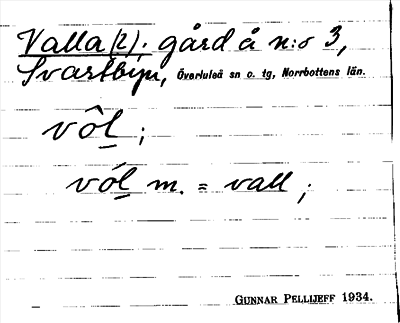 Valla (2); gård å n:o 3,
Svartbyn, Överluleå sn o. tg, Norrbottens län.
vôl ;
vól m. = vall ;
GUNNAR PELLIJEFF 1934.